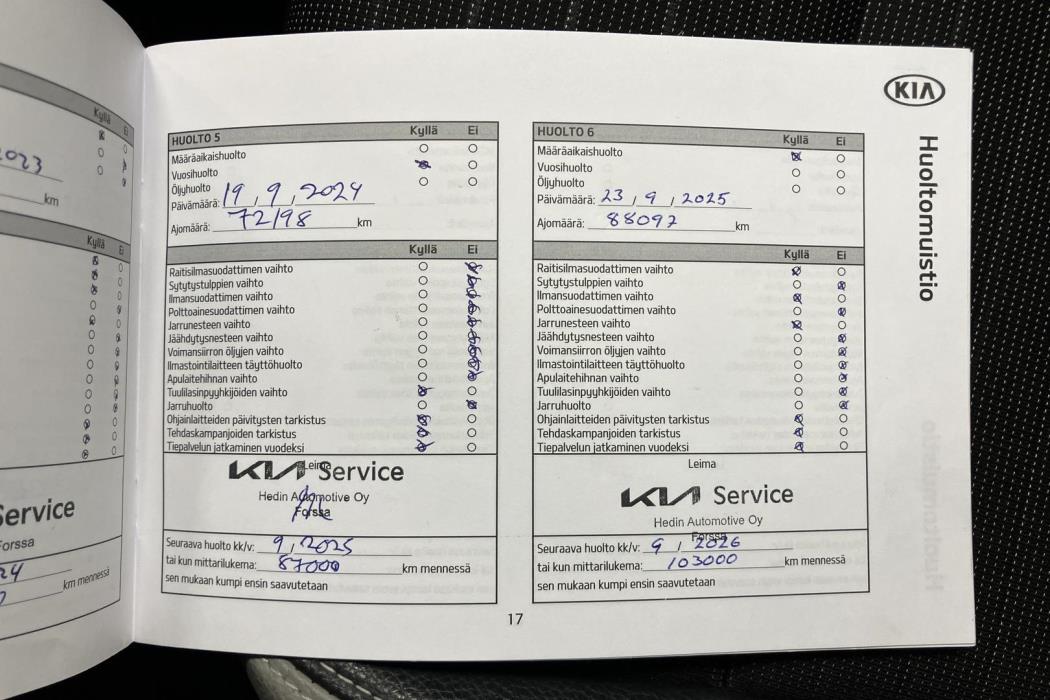 Kyllä Ei
2023
km
Kyllä Ei
Service
Forssa
24
km mennessä
KIA
Huoltomuistio
HUOLTO 5 Kyllä Ei
Määräaikaishuolto
Vuosihuolto
Öljyhuolto
Päivämäärä: 19 , 9 , 2024
Ajomäärä: 72198 km
Kyllä Ei
Raitisilmasuodattimen vaihto
Sytytystulppien vaihto
Ilmansuodattimen vaihto
Polttoainesuodattimen vaihto
Jarrunesteen vaihto
Jäähdytysnesteen vaihto
Voimansiirron öljyjen vaihto
Ilmastointilaitteen täyttöhuolto
Apulaitehihnan vaihto
Tuulilasinpyyhkijöiden vaihto
Jarruhuolto
Ohjainlaitteiden päivitysten tarkistus
Tehdaskampanjoiden tarkistus
Tiepalvelun jatkaminen vuodeksi
Leima
KIA Service
Hedin Automotive Oy
Forssa
Seuraava huolto kk/v: 9 , 2025
tai kun mittarilukema: 87000 km mennessä
sen mukaan kumpi ensin saavutetaan
HUOLTO 6 Kyllä Ei
Määräaikaishuolto
Vuosihuolto
Öljyhuolto
Päivämäärä: 23 , 9 , 2025
Ajomäärä: 88097 km
Kyllä Ei
Raitisilmasuodattimen vaihto
Sytytystulppien vaihto
Ilmansuodattimen vaihto
Polttoainesuodattimen vaihto
Jarrunesteen vaihto
Jäähdytysnesteen vaihto
Voimansiirron öljyjen vaihto
Ilmastointilaitteen täyttöhuolto
Apulaitehihnan vaihto
Tuulilasinpyyhkijöiden vaihto
Jarruhuolto
Ohjainlaitteiden päivitysten tarkistus
Tehdaskampanjoiden tarkistus
Tiepalvelun jatkaminen vuodeksi
Leima
KIA Service
Hedin Automotive Oy
Forssa
Seuraava huolto kk/v: 9 / 2026
tai kun mittarilukema: 103000 km mennessä
sen mukaan kumpi ensin saavutetaan
17